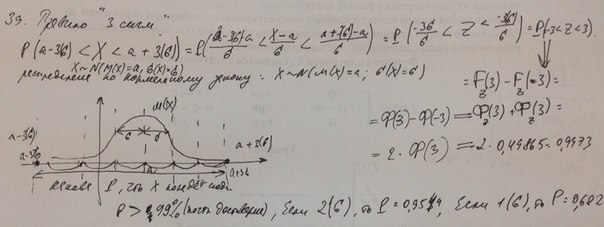 39. Правило "3 сигм"
P(a-3(б) < X < a+3(б)) = P((a-3б)-a/б < X-a/б < (a+3(б))-a/б) = P(-3б/б < Z < 3(б)/б) = P(-3<Z<3).
X~N(M(X)=a, б(X)=б)
распределение по нормальному закону: X~N(M(X)=a; б(X)=б)
= F(3) - F(-3) =
= Ф(3) - Ф(-3) = Ф(3) + Ф(3) =
= 2 · Ф(3) = 2 · 0,49865 = 0,9973
M(X)
a-3(б) a+3(б)
a-3б б б a a+3б
P, что X попадёт сюда
P > 99% (почти достоверно), Если 2(б), то P = 0,9544, Если 1(б), то P = 0,682